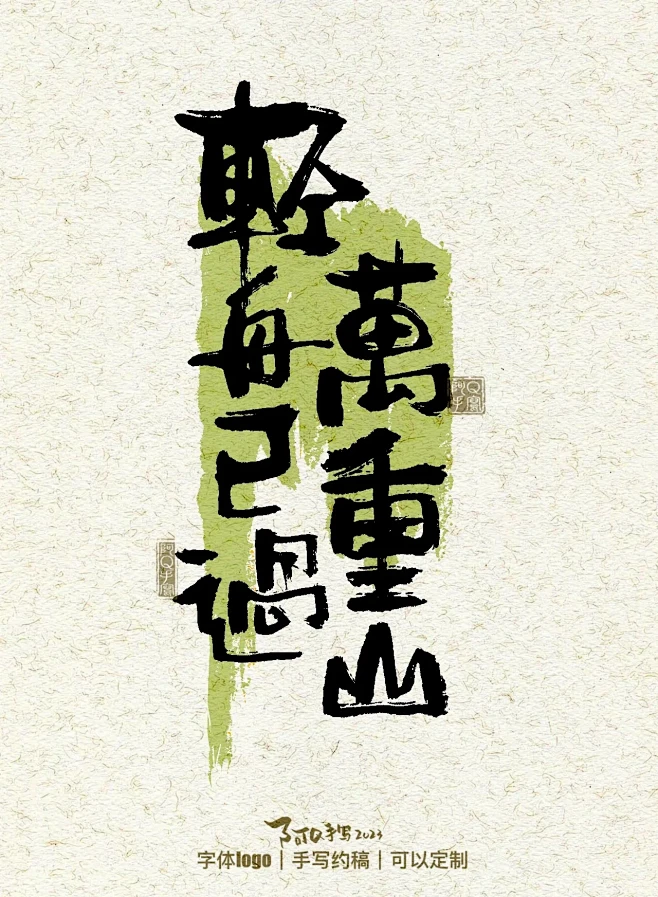 輕舟已過
萬重山
阿Q手寫
阿Q手寫
阿Q手写2023
字体logo｜手写约稿｜可以定制